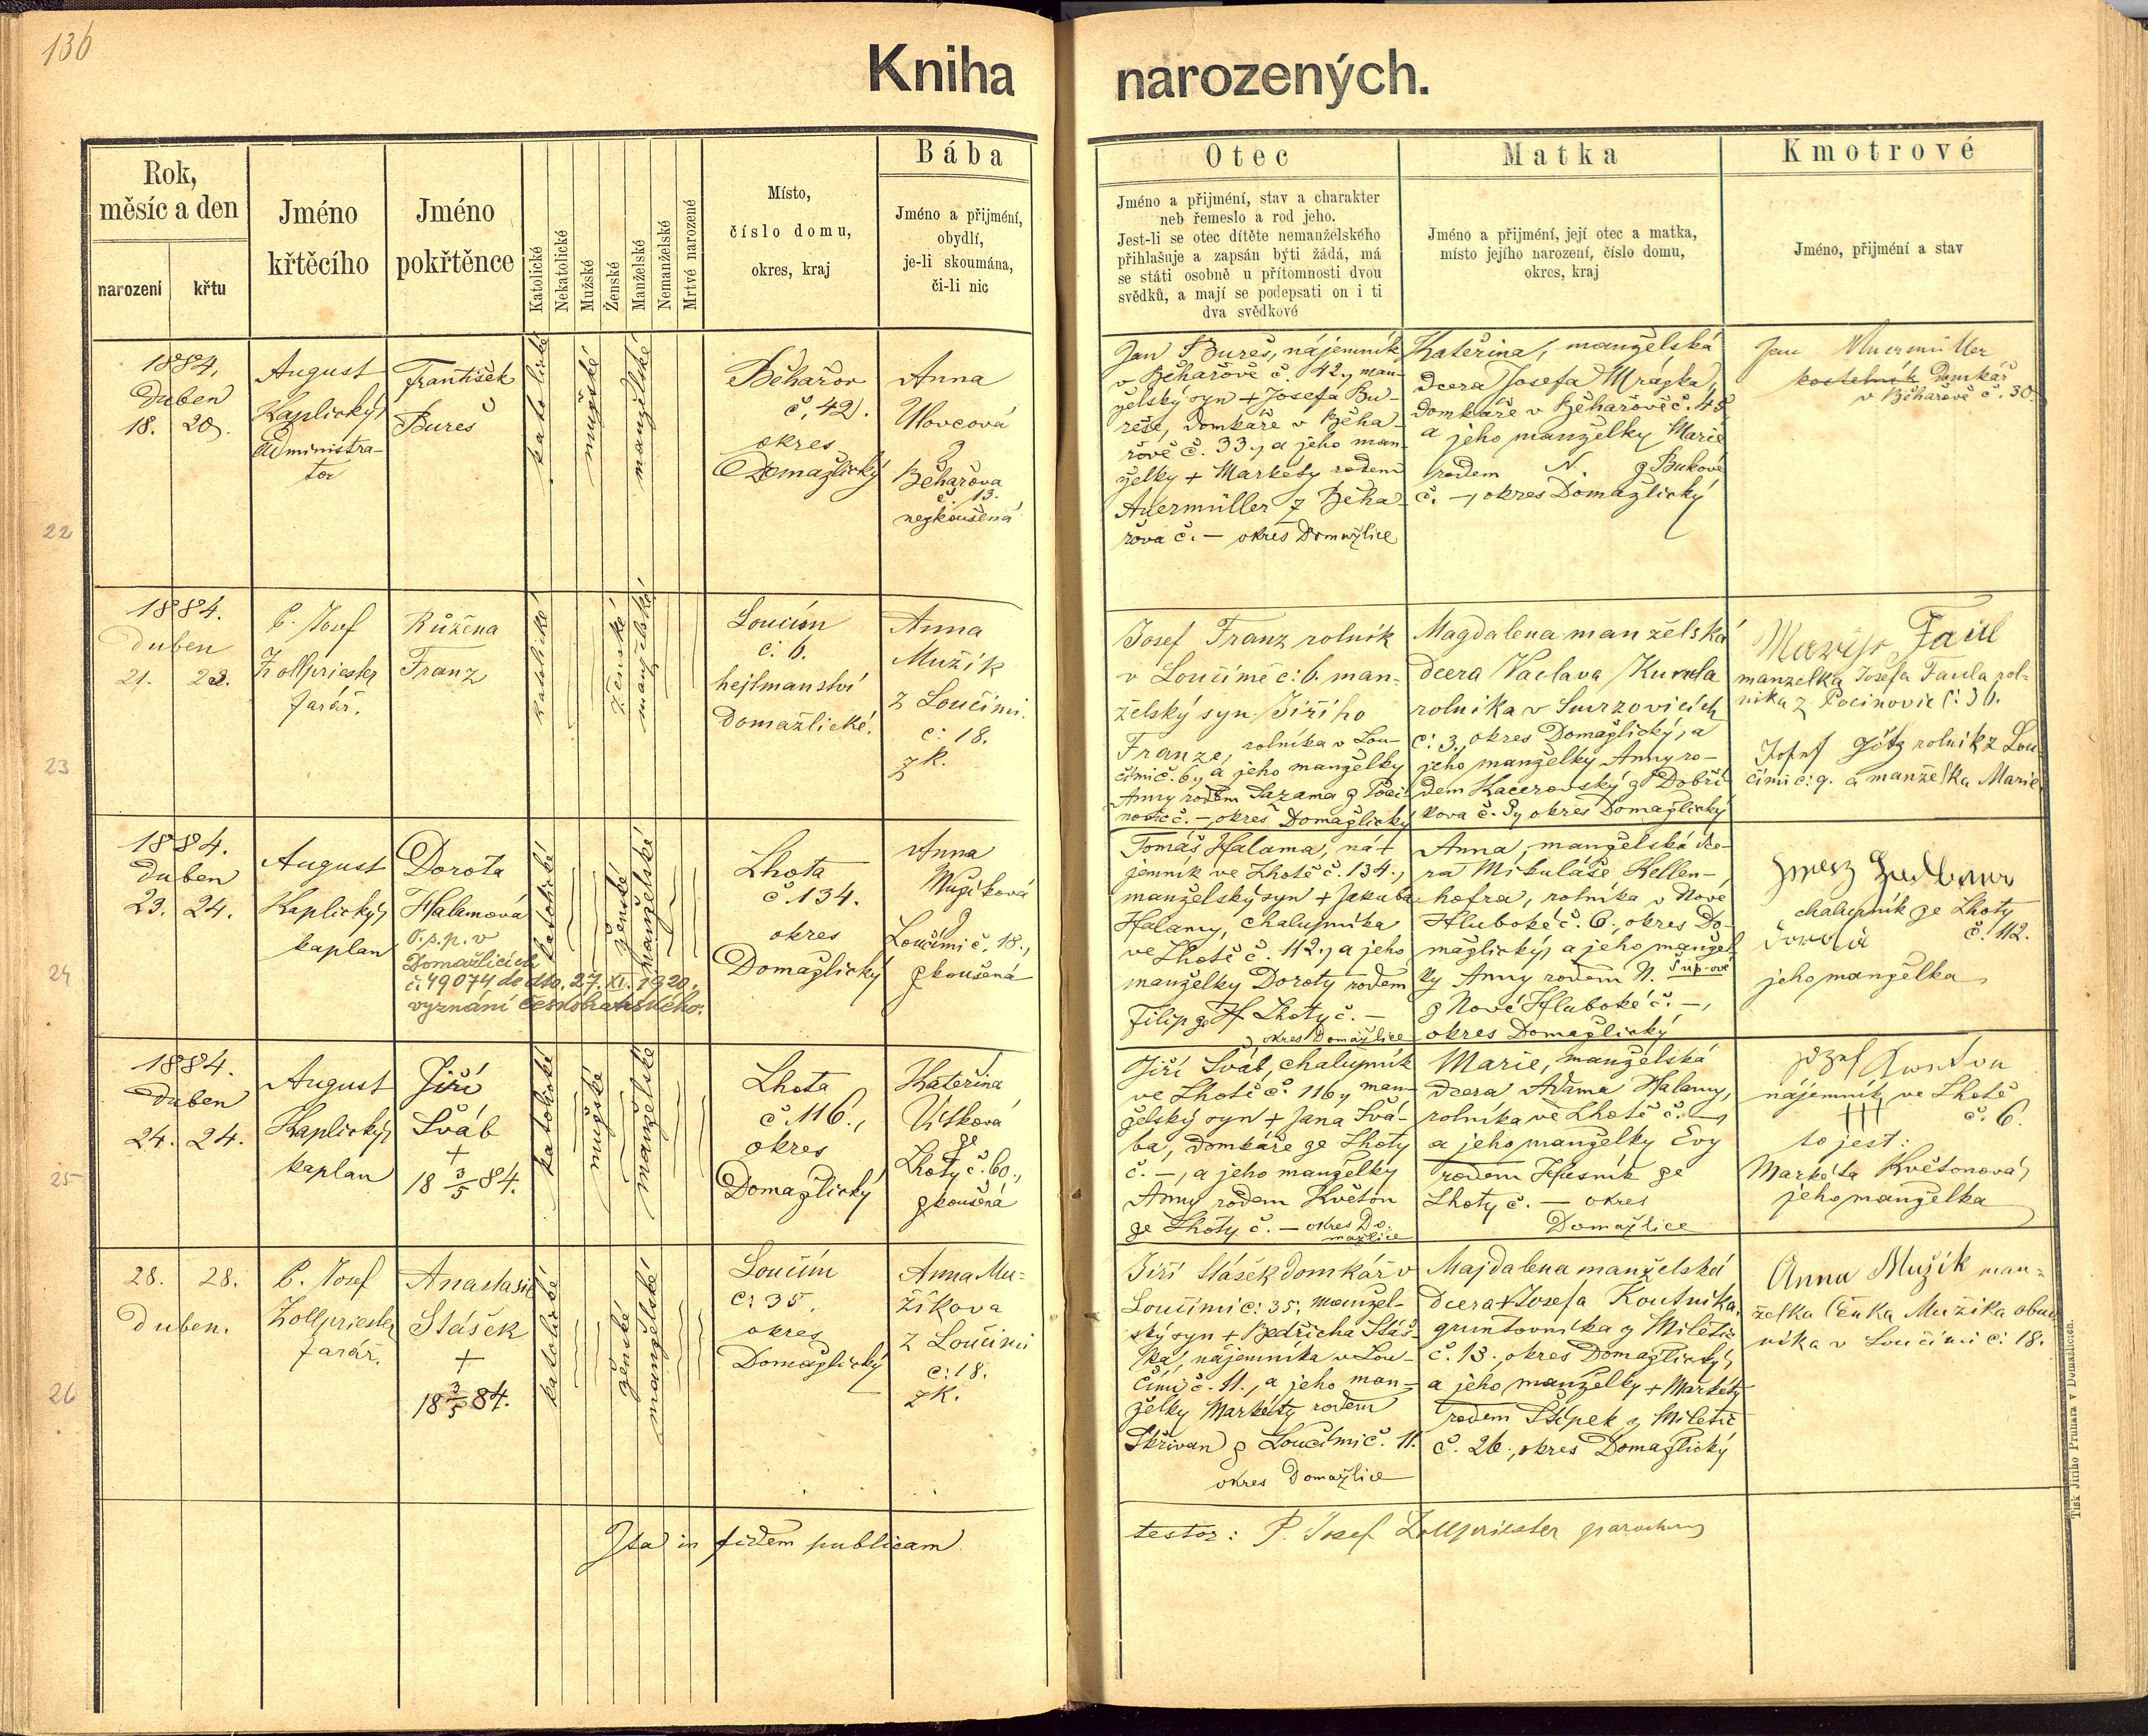 136
Kniha narozených.
Rok,
měsíc a den
narození
křtu
Jméno
křtěcího
Jméno
pokřtěnce
Katolické
Nekatolické
Mužské
Ženské
Manželské
Nemanželské
Mrtvě narozené
Místo,
číslo domu,
okres, kraj
Bába
Jméno a přijmení,
obydlí,
je-li skoumána,
či-li nic
Otec
Jméno a přijmení, stav a charakter
neb řemeslo a rod jeho.
Jest-li se otec dítěte nemanželského
přihlašuje a zapsán býti žádá, má
se státi osobně u přítomnosti dvou
svědků, a mají se podepsati on i ti
dva svědkové
Matka
Jméno a přijmení, její otec a matka,
místo jejího narození, číslo domu,
okres, kraj
Kmotrové
Jméno, přijmení a stav
22
1884.
Duben
18. 20.
August
Kaplický,
Administra-
tor
František
Bureš
katolické
mužské
manželské
Běhařov
č. 42.
okres
Domažlický
Anna
z
Běhařova
č. 13.
nezkoušená
Jan Bureš, nájemník
v Běhařově č. 42, man-
želský syn + Josefa Bu-
reše, domkáře v Běha-
řově č. 33., a jeho man-
želky + Markéty rodem
Auermüller z Běha-
řova č. — okres Domažlice
Kateřina, manželská
dcera Josefa Mrázka,
domkáře v Běhařově č. 45
a jeho manželky Marie
rodem N. z Bukové
č. —, okres Domažlický
Jan Auermüller
kostelník Domkář
v Běhařově č. 30.
23
1884.
Duben
21. 22.
P. Josef
Zollpriester
farář.
Růžena
Franz
katolické
ženské
manželské
Loučím
č: 6.
hejtmanství
Domažlické.
Anna
Mužík
z Loučimi.
č: 18.
zk.
Josef Franz rolník
v Loučimě č: 6. man-
želský syn Jiřího
Franze, rolníka v Lou-
čimi č. 6, a jeho manželky
Anny rodem Sazama z Poci-
novic č. —, okres Domažlický
Magdalena manželská
dcera Václava Kunda
rolníka v Smrzovicích
č: 3., okres Domažlický, a
jeho manželky Anny ro-
dem Kacerovský z Dobří-
kova č. 3, okres Domažlický
Faul
manželka Josefa Faula rol-
níka z Pocinovic č: 36.
Josef Götz rolník z Lou-
čimi č: 9. a manželka Marie
24
1884.
Duben
23. 24.
August
Kaplický,
kaplan
Dorota
Halamová
O.s.p. v
Domažlicích
č: 49074 de dto. 27. XI. 1920.
vyznání českobratrského.
katolické
ženské
manželské
Lhota
č. 134.
okres
Domažlický
Anna
Mužíková
z
Loučimi č. 18.,
zkoušená
Tomáš Halama, ná-
jemník ve Lhotě č. 134.,
manželský syn + Jakuba
Halamy, chalupníka
ve Lhotě č. 112., a jeho
manželky Doroty rodem
Filip ze Lhoty č. —
okres Domažlice
Anna, manželská dce-
ra Mikuláše Kellen-
hofra, rolníka v Nové
Hluboké č. 6., okres Do-
mažlický, a jeho manžel-
ky Anny rodem N.
z Nové Hluboké č. —,
okres Domažlický
chalupník ze Lhoty
č. 112.
jeho manželka
25
1884.
Duben
24. 24.
August
Kaplický,
kaplan
Jiří
Šváb
+
18 3/5 84.
katolické
mužské
manželské
Lhota
č. 116.,
okres
Domažlický
Kateřina
Vítková
ze
Lhoty č. 60.,
zkoušená
Jiří Šváb, chalupník
ve Lhotě č. 116, man-
želský syn + Jana Švá-
ba, domkáře ze Lhoty
č. —, a jeho manželky
Anny rodem Květon
ze Lhoty č. — okres Do-
mažlice
Marie, manželská
dcera Adama Halamy,
rolníka ve Lhotě č. —,
a jeho manželky Evy
rodem Husník ze
Lhoty č. — okres
Domažlice
nájemník ve Lhotě
+++ č. 6.
to jest:
Markéta Květonová,
jeho manželka
26
28. 28.
Duben.
P. Josef
Zollpriester
farář.
Anastasie
Stášek
+
18 3/5 84.
katolické
ženské
manželské
Loučím
č: 35.
okres
Domažlický
Anna Mu-
žíkova
z Loučimi
č: 18.
zk.
Jiří Stášek domkář v
Loučimi č: 35, manžel-
ský syn + Bedřicha Stáš-
ka, nájemníka v Lou-
čimi č. 11., a jeho man-
želky Markéty rodem
Skřivan z Loučimi č. 11.
okres Domažlice
Majdalena manželská
dcera + Josefa Koutníka,
gruntovníka z Miletic
č. 13., okres Domažlický,
a jeho manželky + Markéty
rodem Štípek z Miletic
č. 26., okres Domažlický
Anna Mužík man-
želka Mužika
níka v Loučimi č: 18.
Ita in fidem publicam
testor: P. Josef Zollpriester parochus
Tisk Jiřího Prunara v Domažlicích.